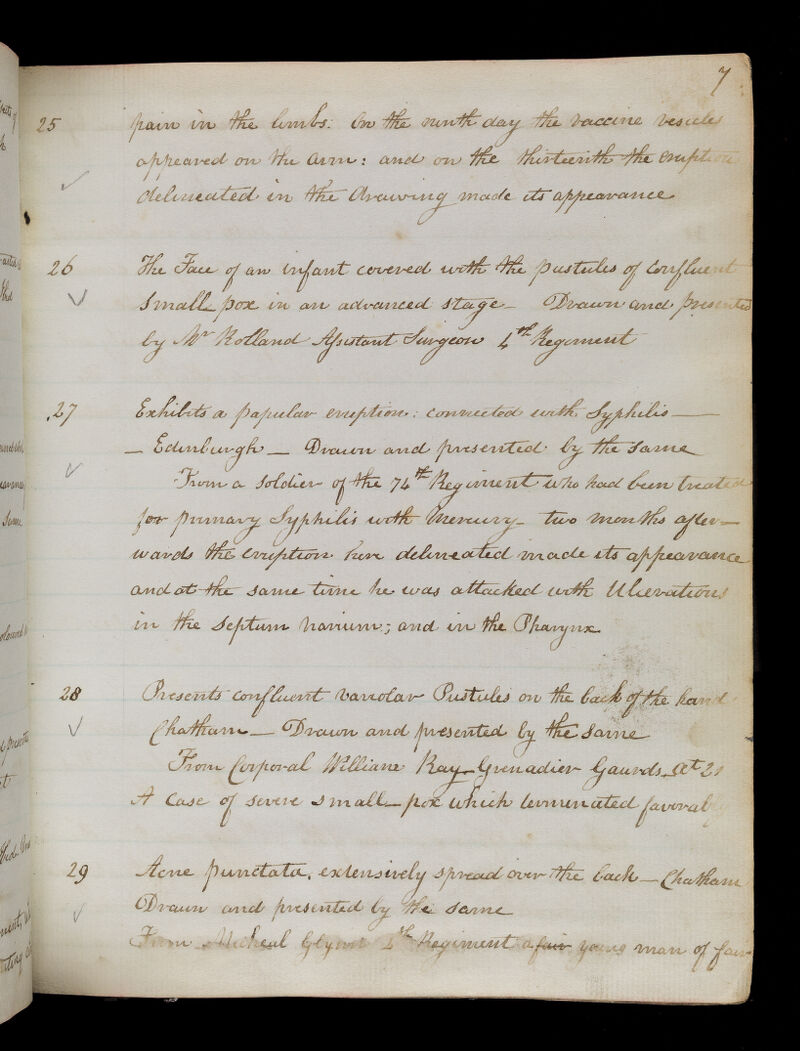 7
25 pain in the limbs: On the ninth day the vaccine vesicles
appeared on the arm: and on the thirteenth the eruption
delineated in the drawing made its appearance
26 The Face of an infant covered with the pustules of confluent
Small pox in an advanced stage — Drawn and presented
by Mr Rolland Assistant Surgeon 4th Regiment
27 Exhibits a papular eruption: connected with Syphilis —
— Edinburgh — Drawn and presented by the same
From a soldier of the 74th Regiment who had been treated
for primary Syphilis with Mercury — two months after-
wards the eruption here delineated made its appearance
and at the same time he was attacked with Ulcerations
in the Septum narium; and in the Pharynx
28 Presents confluent variolar Pustules on the back of the hand
Chatham — Drawn and presented by the same
From Corporal Williane Kay — Grenadier Gaurds — æt 21
A case of severe small-pox which terminated favorably
29 Acne punctata, extensively spread over the back — Chatham
Drawn and presented by the same
From Micheal Regiment a young man of fair